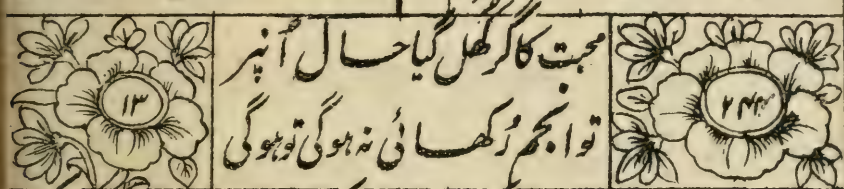 محبت کا گر کھل گیا حال اُنپر
۲۴۴
۱۳
تو انجم رُکھائی نہ ہوگی تو ہوگی